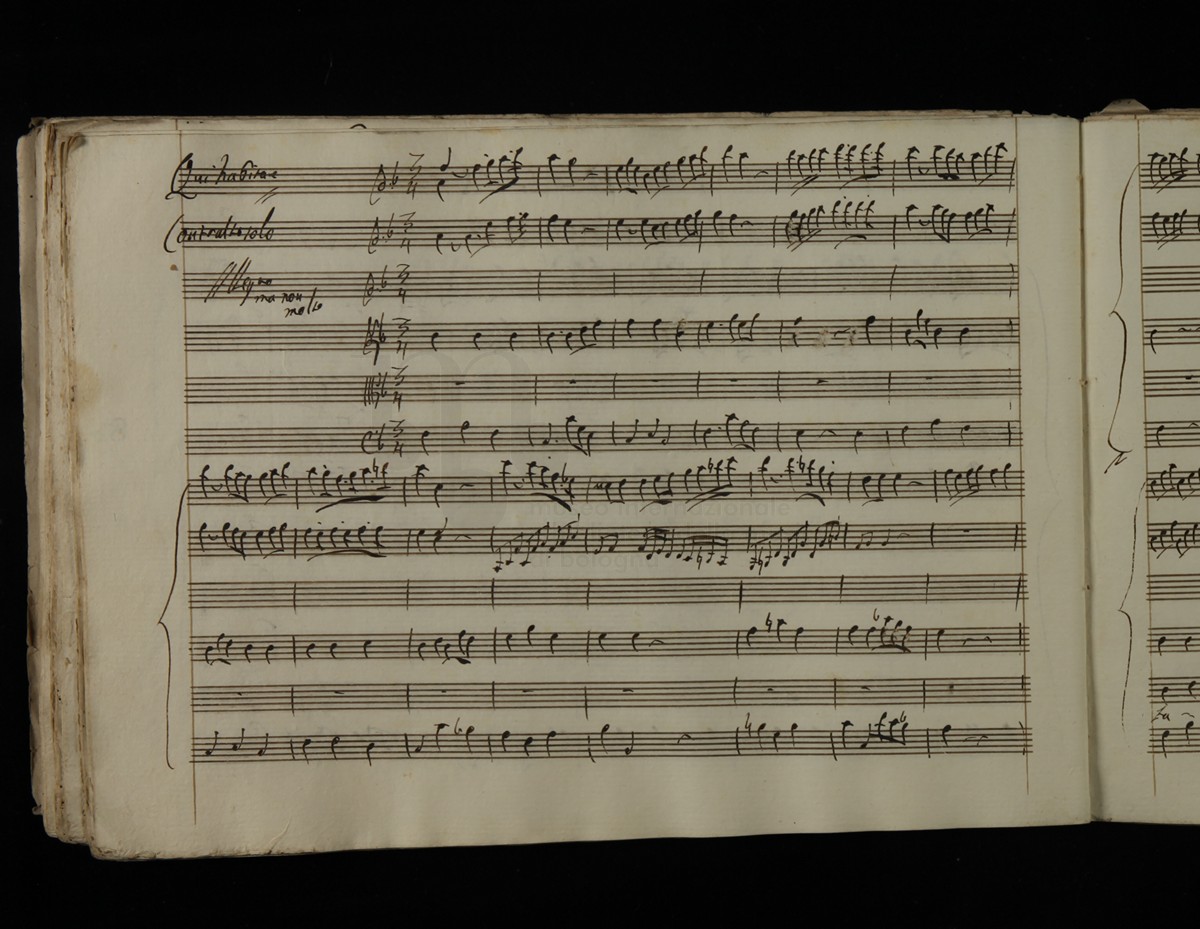 Qui habitat
Contralto solo
Allegro
ma non
molto
3/4
3/4
3/4
3/4
3/4
3/4
museo internazionale
di bologna